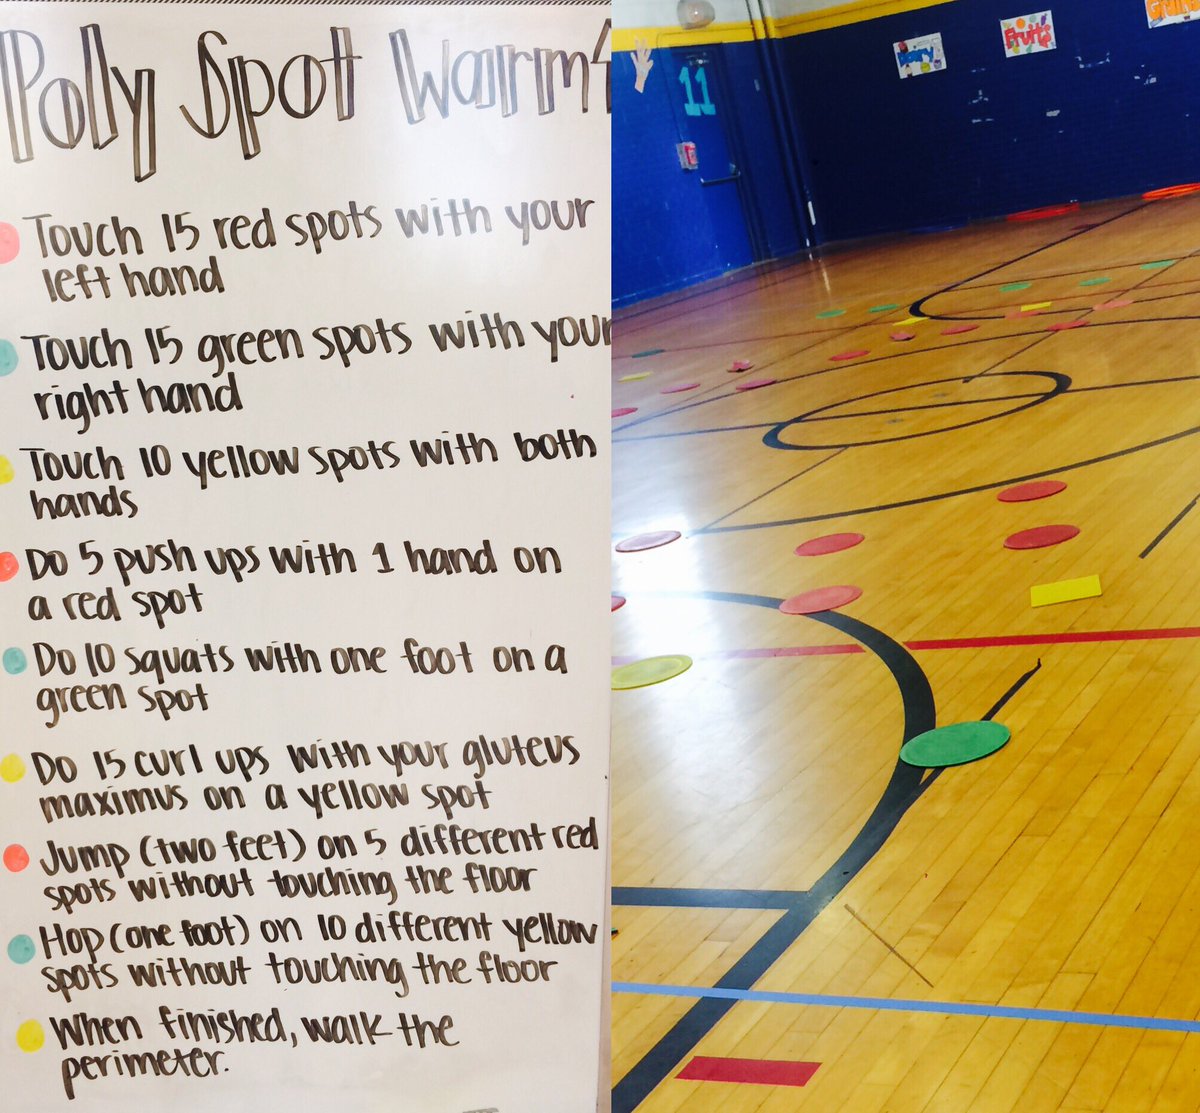 Poly Spot Warm
Touch 15 red spots with your
left hand
Touch 15 green spots with your
right hand
Touch 10 yellow spots with both
hands
Do 5 push ups with 1 hand on
a red spot
Do 10 squats with one foot on a
green spot
Do 15 curl ups with your gluteus
maximus on a yellow spot
Jump (two feet) on 5 different red
spots without touching the floor
Hop (one foot) on 10 different yellow
spots without touching the floor
When finished, walk the
perimeter.
11
Fruits